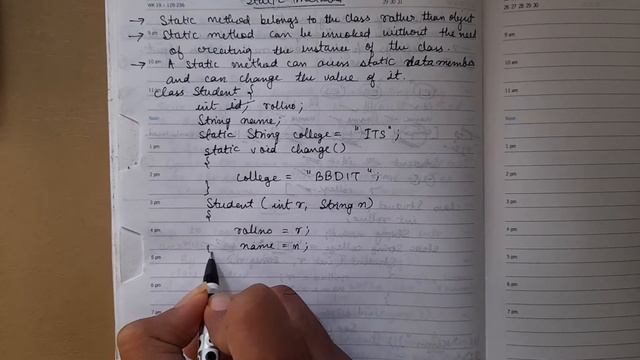 Static method
WK 19 • 129-236
29 30 31
26 27 28 29 30
→ Static method belongs to the class rather than object
→ Static method can be invoked without the need
of creating the instance of the class.
→ A static method can access static data member
and can change the value of it.
class Student {
int id, rollno;
String name;
static String college = "ITS";
static void change()
{
college = "BBDIT";
}
Student (int r, String n)
{
rollno = r;
name = n;
9 am
10 am
11 am
Noon
1 pm
2 pm
3 pm
4 pm
5 pm
6 pm
7 pm